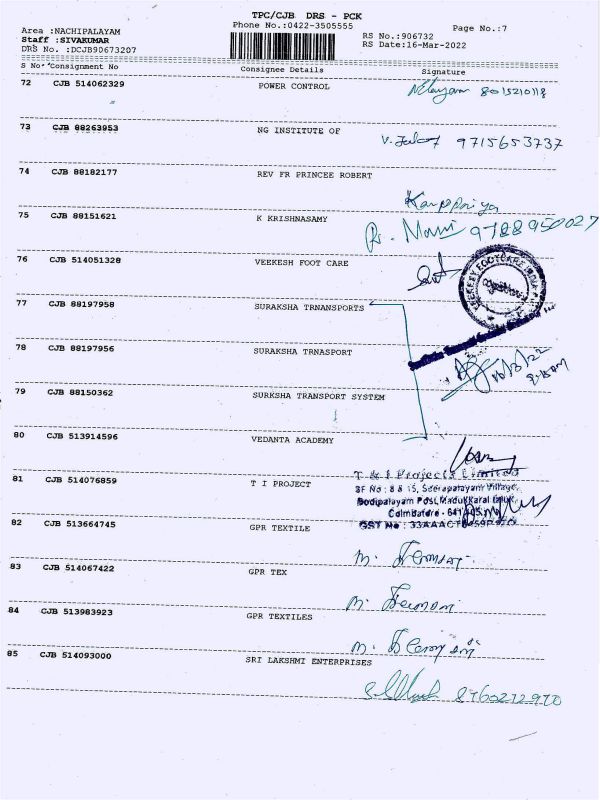 TPC/CJB DRS - PCK
Area :NACHIPALAYAM Phone No.:0422-3505555 Page No.:7
Staff :SIVAKUMAR RS No.:906732
DRS No. :DCJB90673207 RS Date:16-Mar-2022
S No Consignment No Consignee Details Signature
72 CJB 514062329 POWER CONTROL 8015210118
73 CJB 88263953 NG INSTITUTE OF 9715653737
74 CJB 88182177 REV FR PRINCEE ROBERT
75 CJB 88151621 K KRISHNASAMY 9788950027
76 CJB 514051328 VEEKESH FOOT CARE
77 CJB 88197958 SURAKSHA TRNANSPORTS
78 CJB 88197956 SURAKSHA TRNASPORT
79 CJB 88150362 SURKSHA TRANSPORT SYSTEM
80 CJB 513914596 VEDANTA ACADEMY
T & I Projects Limited
81 CJB 514076859 T I PROJECT SF No : 8 & 15, Seerapalayam Village,
Bodipalayam Post, Madukkarai
82 CJB 513664745 GPR TEXTILE Coimbatore -
GST No :
83 CJB 514067422 GPR TEX
84 CJB 513983923 GPR TEXTILES
85 CJB 514093000 SRI LAKSHMI ENTERPRISES